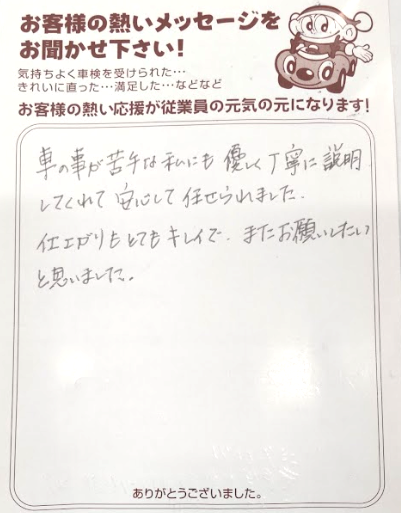 お客様の熱いメッセージを
お聞かせ下さい！
気持ちよく車検を受けられた…
きれいに直った…満足した…などなど
お客様の熱い応援が従業員の元気の元になります！
車の事が苦手な私にも優しく丁寧に説明
してくれて安心して任せられました.
仕上がりもとてもキレイで、またお願いしたい
と思いました。
ありがとうございました。